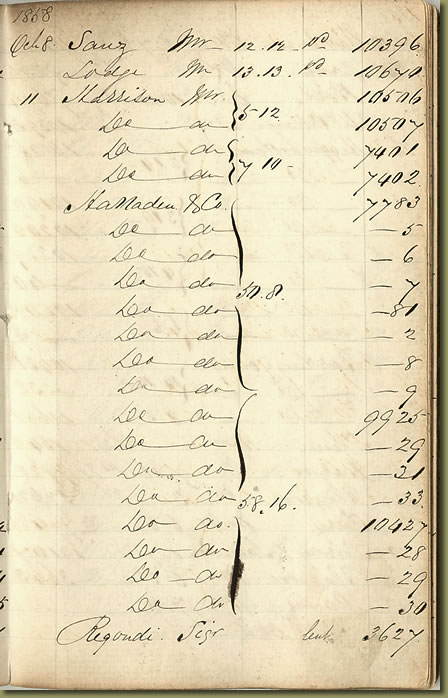 1858
Oct 8 Sanz Mr 12.12 Pd 10396
Lodge Mr 13.13. Pd 10670
11 Harrison Mr. 10506
Do do 5 12 10507
Do do 7401
Do do 7 10 7402
& Co. 7783
Do do — 5
Do do — 6
Do do — 7
Do do 50.8. — 81
Do do — 2
Do do — 8
Do do — 9
Do do 9925
Do do — 29
Do do — 31
Do do 58.16. — 33
Do do. 10427
Do do — 28
Do do — 29
Do do — 30
Regondi. Sigr lent 3627